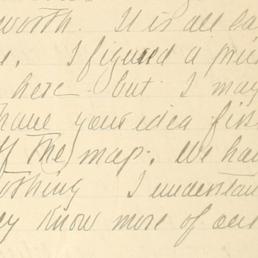 worth. It is all
I figured a
here but I may
have your idea
If the map. We
I understan
Know more of